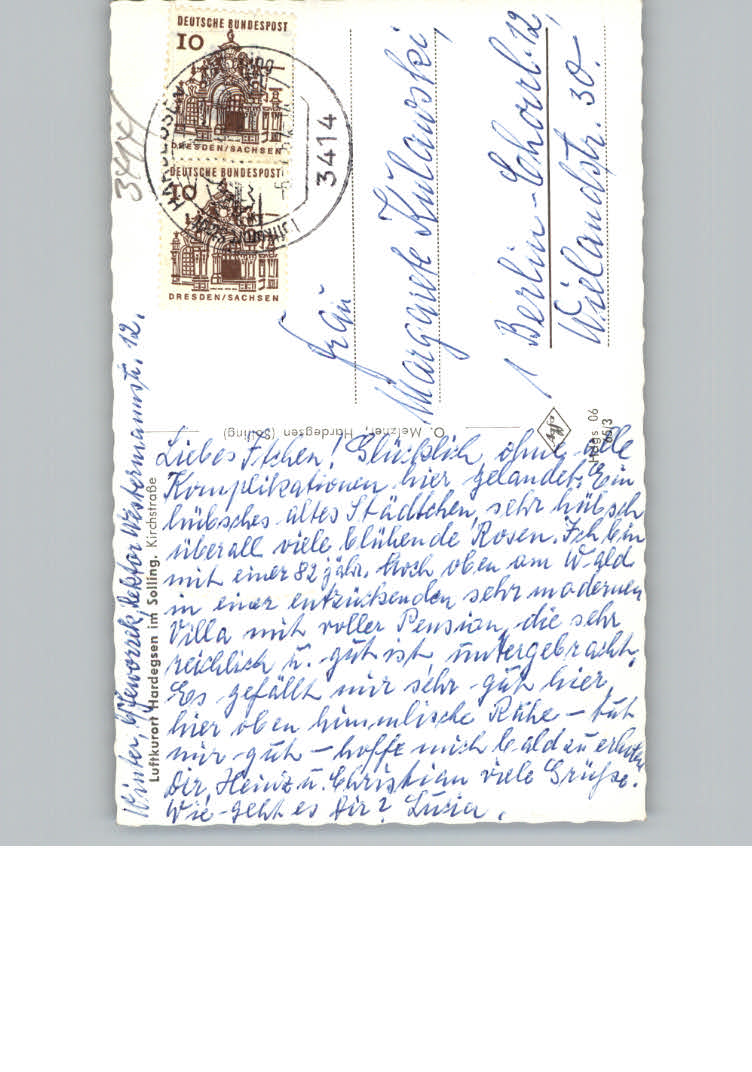 DEUTSCHE BUNDESPOST
10
DRESDEN/SACHSEN
DEUTSCHE BUNDESPOST
10
DRESDEN/SACHSEN
HARDEGSEN
3414
3414
Frau
Margarete Kulawski,
1 Berlin-Charl. 12,
Wielandstr. 30.
O. Metzner, Hardegsen (Solling)
Agfa
Hdgs 06
65/3
Luftkurort Hardegsen im Solling. Kirchstraße
Winter, Westermannstr. 12.
Liebes! Glücklich ohne alle
Komplikationen hier gelandet. Ein
hübsches altes Städtchen, sehr hübsch
überall viele blühende Rosen. Ich bin
mit einer 82 jähr. hoch oben am Wald
in einer entzückenden sehr modernen
Villa mit voller Pension, die sehr
reichlich u. gut ist, untergebracht.
Es gefällt mir sehr gut hier,
hier oben himmlische Ruhe – tut
mir gut – hoffe mich bald zu erholen
Dir, Heinz u. Christian viele Grüße.
Wie geht es Dir? Luzia.